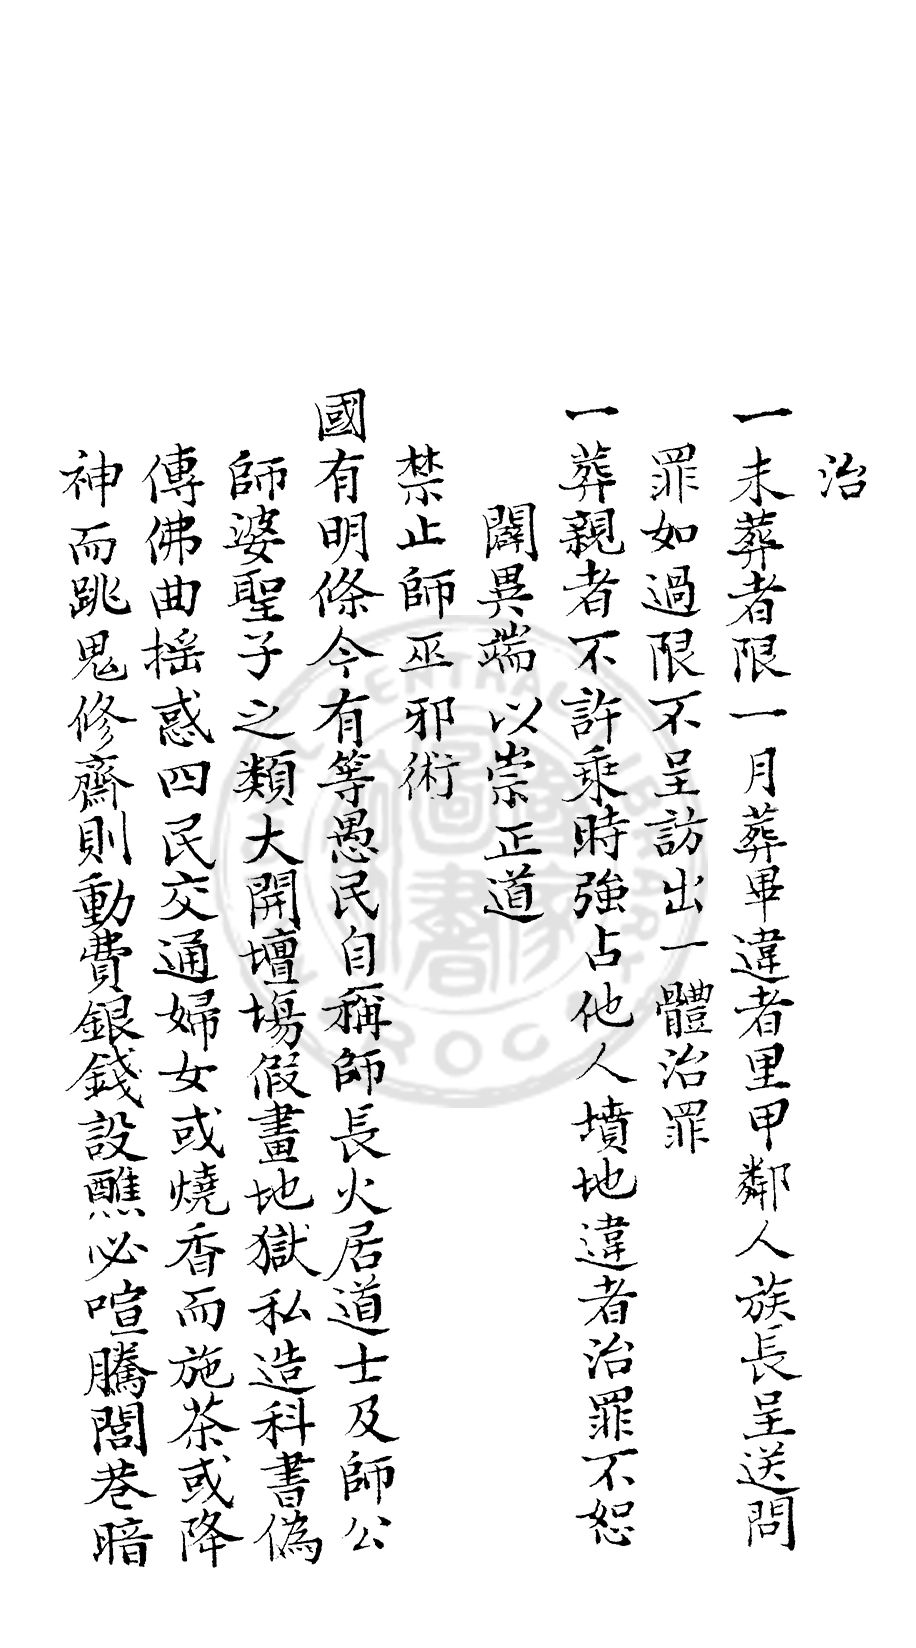 治
一未葬者限一月葬畢違者里甲鄰人族長呈送問
罪如過限不呈訪出一體治罪
一葬親者不許乘時強占他人墳地違者治罪不恕
闢異端以崇正道
禁止師巫邪術
國有明條今有等愚民自稱師長火居道士及師公
師婆聖子之類大開壇場假畫地獄私造科書偽
傳佛曲搖惑四民交通婦女或燒香而施茶或降
神而跳鬼修齋則動費銀錢設醮必喧騰閭巷暗